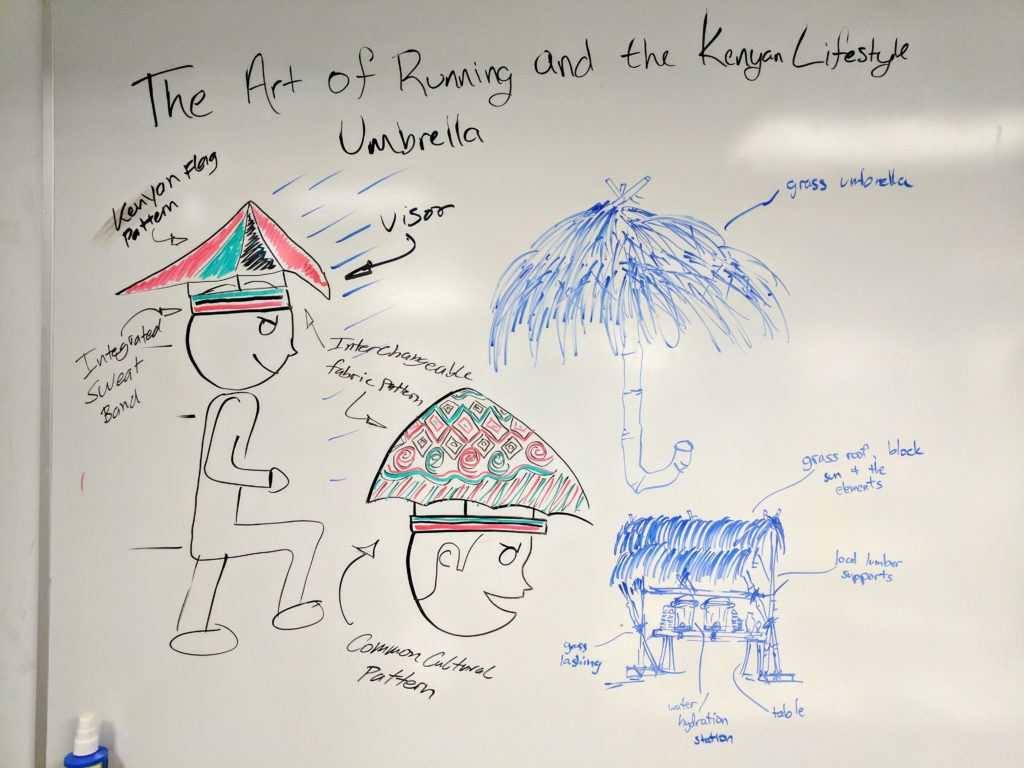 The Art of Running and the Kenyan Lifestyle
Umbrella
Kenyan Flag
Pattern
Visor
Integrated
Sweat
Band
Interchangeable
fabric pattern
Common Cultural
Pattern
grass umbrella
grass roof, block
sun & the
elements
local lumber
supports
grass
lashing
water
hydration
station
table